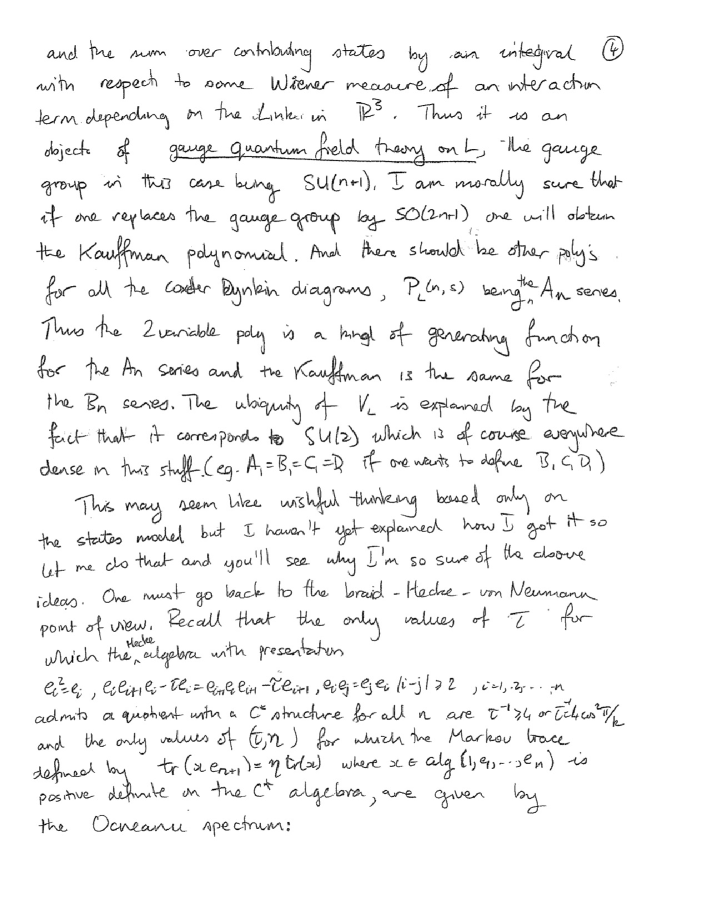 and the sum over contributing states by an integral ④
with respect to some Wiener measure of an interaction
term depending on the Link in ℝ³. Thus it is an
object of gauge quantum field theory on L, the gauge
group in this case being SU(n+1). I am morally sure that
if one replaces the gauge group by SO(2n+1) one will obtain
the Kauffman polynomial. And there should be other poly's
for all the Coxeter Dynkin diagrams, P_L(n,s) being the Aₙ series.
Thus the 2 variable poly is a kind of generating function
for the An series and the Kauffman is the same for
the Bn series. The ubiquity of V_L is explained by the
fact that it corresponds to SU(2) which is of course everywhere
dense in this stuff. (eg. A₁=B₁=C₁=D₁ if one wants to define B₁C₁D₁)
This may seem like wishful thinking based only on
the states model but I haven't yet explained how I got it so
let me do that and you'll see why I'm so sure of the above
ideas. One must go back to the braid - Hecke - von Neumann
point of view. Recall that the only values of τ for
which the Hecke algebra with presentation
eᵢ²=eᵢ, eᵢeᵢ₊₁eᵢ-τeᵢ=eᵢ₊₁eᵢeᵢ₊₁-τeᵢ₊₁, eᵢeⱼ=eⱼeᵢ |i-j|≥2, i=1,2,...n
admits a quotient with a C* structure for all n are τ⁻¹≥4 or τ⁻¹=4cos²π/k
and the only values of (τ,η) for which the Markov trace
defined by tr(x eₙ₊₁)=η tr(x) where x ∈ alg{1,e₁,...,eₙ} is
positive definite on the C* algebra, are given by
the Ocneanu spectrum: